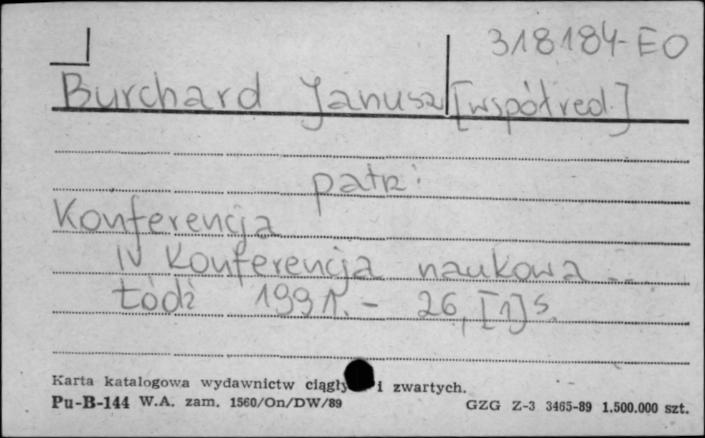 318184-EO
Burchard Janusz [współred.]
patrz:
Konferencja
IV Konferencja naukowa ...
Łódź 1991. - 26, [1] s.
Karta katalogowa wydawnictw ciągły i zwartych.
Pu-B-144 W.A. zam. 1560/On/DW/89 GZG Z-3 3465-89 1.500.000 szt.